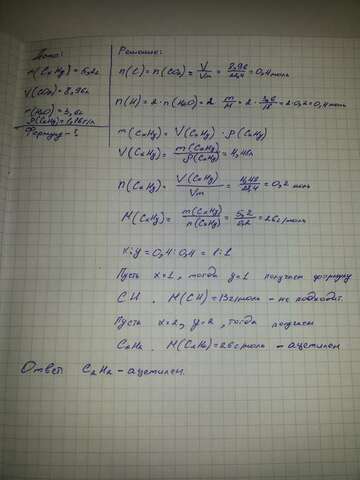 Дано:
m(CxHy) = 5,2г
V(CO₂) = 8,96л
m(H₂O) = 3,6г
ρ(CxHy) = 1,16г/л
Формулу - ?
Решение:
n(C) = n(CO₂) = V/Vm = 8,96/22,4 = 0,4 моль
n(H) = 2 · n(H₂O) = 2 · m/M = 2 · 3,6/18 = 2 · 0,2 = 0,4 моль
m(CxHy) = V(CxHy) · ρ(CxHy)
V(CxHy) = m(CxHy)/ρ(CxHy) = 4,48л
n(CxHy) = V(CxHy)/Vm = 4,48/22,4 = 0,2 моль
M(CxHy) = m(CxHy)/n(CxHy) = 5,2/0,2 = 26г/моль
x:y = 0,4:0,4 = 1:1
Пусть x=1, тогда y=1 получаем формулу
CH, M(CH) = 13г/моль - не подходит.
Пусть x=2, y=2, тогда получаем
C₂H₂. M(C₂H₂) = 26г/моль - ацетилен.
Ответ C₂H₂ - ацетилен.